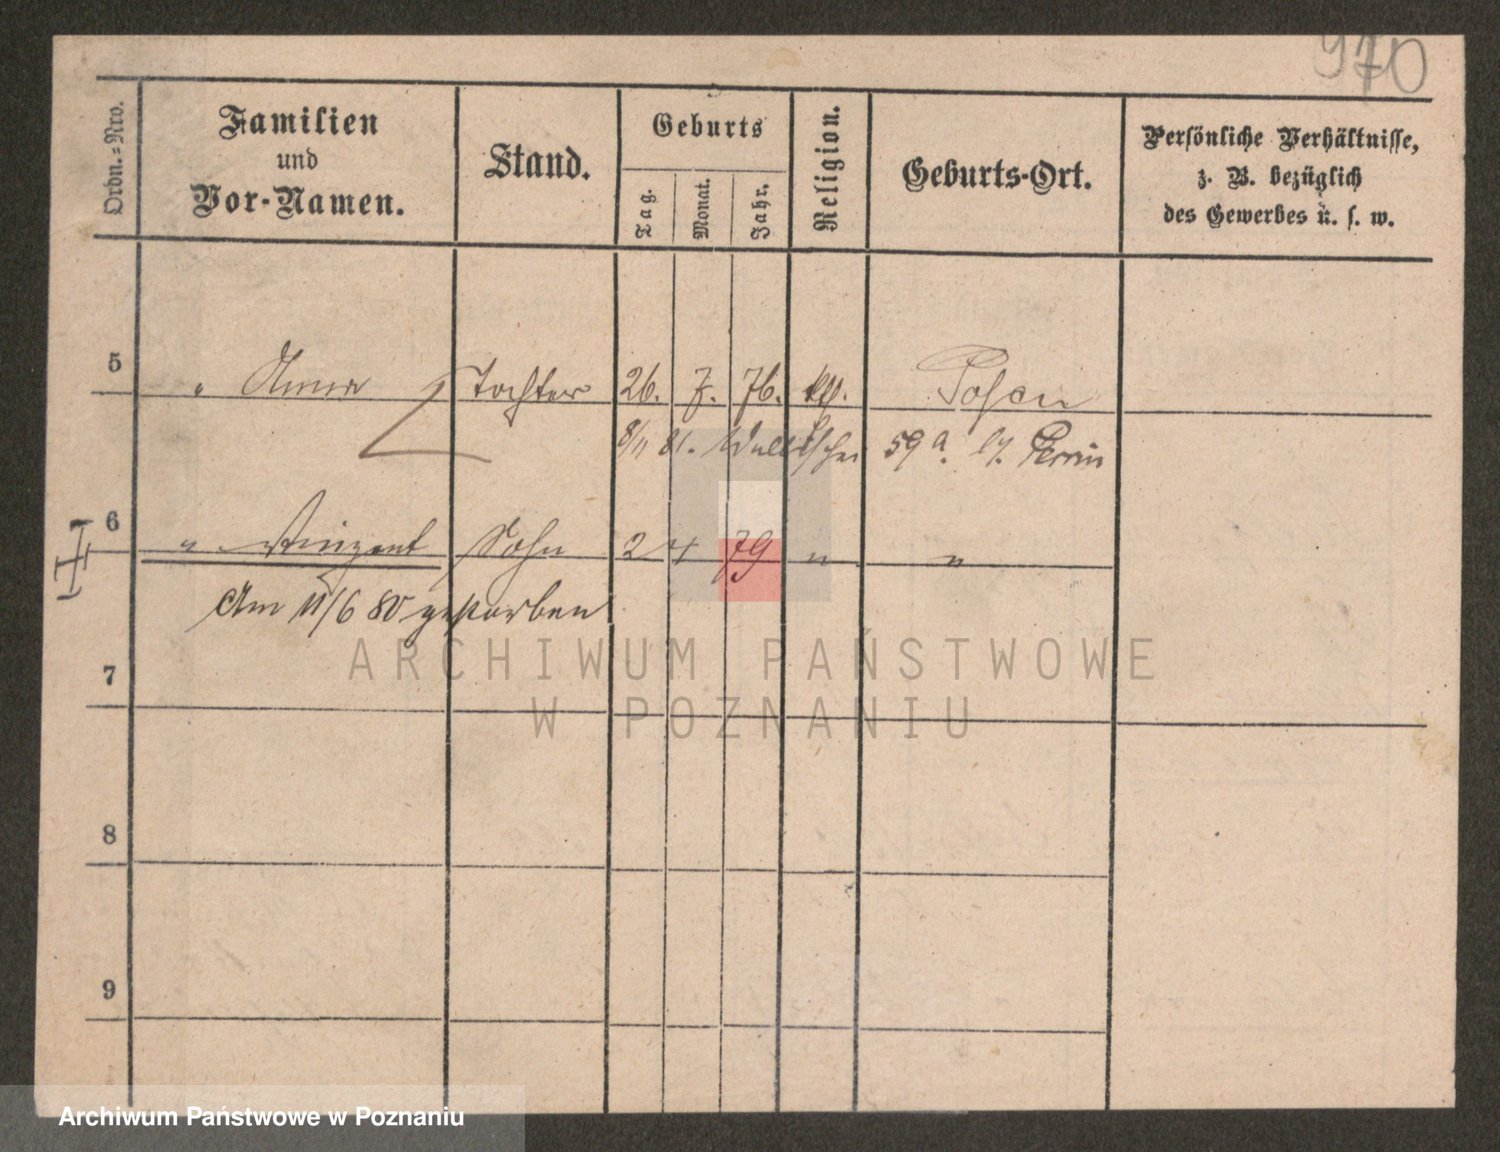 970
Ordn.-Nro.
Familien
und
Vor-Namen.
Stand.
Geburts
Tag.
Monat.
Jahr.
Religion.
Geburts-Ort.
Persönliche Verhältnisse,
z. B. bezüglich
des Gewerbes u. s. w.
5 " Anna Tochter 26. 7. 76. kth. Posen
8/11 81. 59 a.
6 " Vinzent Sohn 2 4 79 " "
Am 11/6 80 gestorben
7
8
9
ARCHIWUM PAŃSTWOWE
W POZNANIU
Archiwum Państwowe w Poznaniu